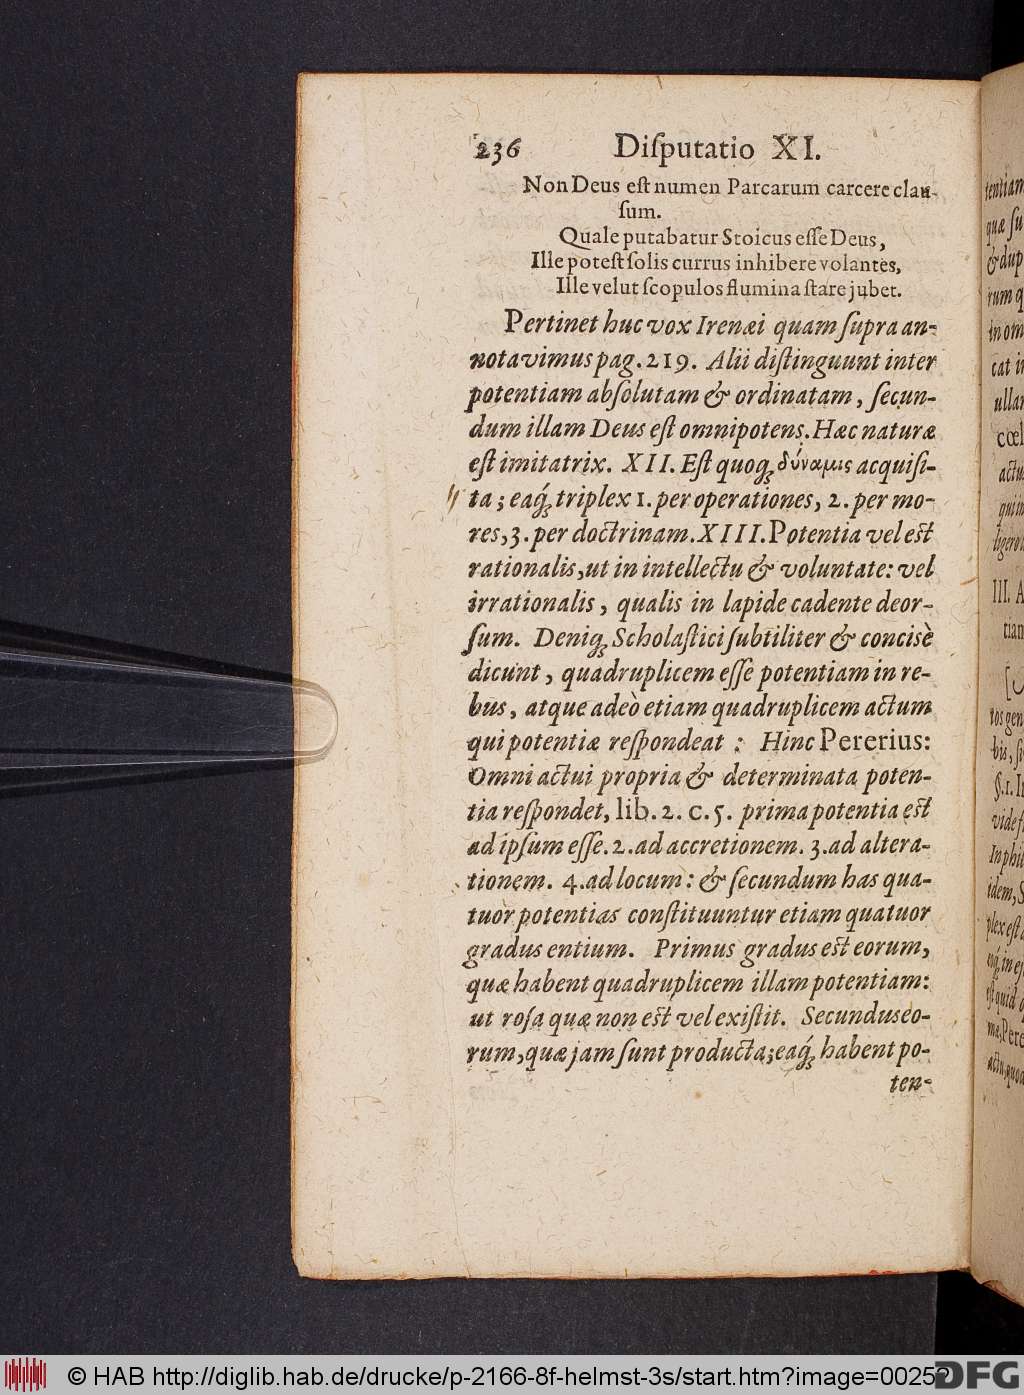 236 Diſputatio XI.
Non Deus eſt numen Parcarum carcere clau-
ſum.
Quale putabatur Stoicus eſſe Deus,
Ille poteſt ſolis currus inhibere volantes,
Ille velut ſcopulos flumina ſtare jubet.
Pertinet huc vox Irenæi quam ſupra an-
notavimus pag. 219. Alii diſtinguunt inter
potentiam abſolutam & ordinatam, ſecun-
dum illam Deus eſt omnipotens. Hæc naturæ
eſt imitatrix. XII. Eſt quoq; δύναμις acquiſi-
ta; eaq́; triplex 1. per operationes, 2. per mo-
res, 3. per doctrinam. XIII. Potentia vel est
rationalis, ut in intellectu & voluntate: vel
irrationalis, qualis in lapide cadente deor-
ſum. Deniq; Scholaſtici ſubtiliter & concisè
dicunt, quadruplicem eſſe potentiam in re-
bus, atque adeò etiam quadruplicem actum
qui potentiæ reſpondeat : Hinc Pererius:
Omni actui propria & determinata poten-
tia reſpondet, lib. 2. c. 5. prima potentia est
ad ipſum eſſe. 2. ad accretionem. 3. ad altera-
tionem. 4. ad locum: & ſecundum has qua-
tuor potentias conſtituuntur etiam quatuor
gradus entium. Primus gradus est eorum,
quæ habent quadruplicem illam potentiam:
ut roſa quæ non est vel exiſtit. Secundus eo-
rum, quæ jam ſunt producta; eaq́; habent po-
ten-
tentiam
quæ ſu
& dup
rum q
in om
cat i
ullar
cœl
actu
qui i
III. A
tian
tos gen
bis, ſi
§. 1. I
vide ſ
In phil
idem, S
plex eſt
ma, Pere
actu, quod
© HAB http://diglib.hab.de/drucke/p-2166-8f-helmst-3s/start.htm?image=00252
DFG